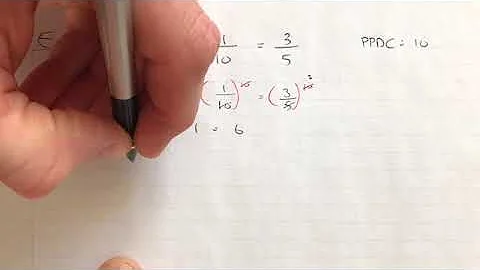 E 1/10 = 3/5 PPDC = 10
(1/10)^10 = (3/5)^10
1 = 6